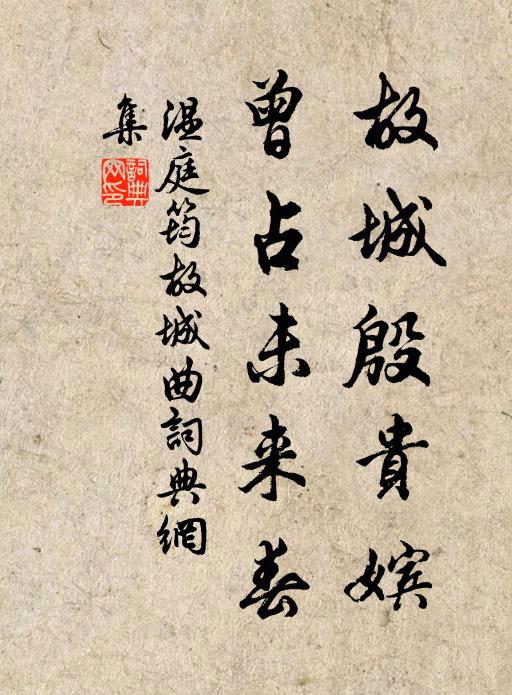 故城殷貴嬪
曾占未来春
温庭筠故城曲詞典網
集
詞典
网印